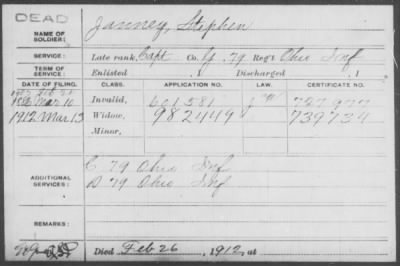 DEAD
NAME OF SOLDIER: Janney, Stephen
SERVICE: Late rank, Capt Co. G, 79 Reg't Ohio Inf
TERM OF SERVICE: Enlisted , 1 Discharged , 1
DATE OF FILING. CLASS. APPLICATION NO. LAW. CERTIFICATE NO.
Mar 10 Invalid, 601581 727977
1912 Mar 13 Widow, 982449 739734
Minor,
ADDITIONAL SERVICES: C 79 Ohio Inf
D 79 Ohio Inf
REMARKS:
Died Feb 26, 1912, at